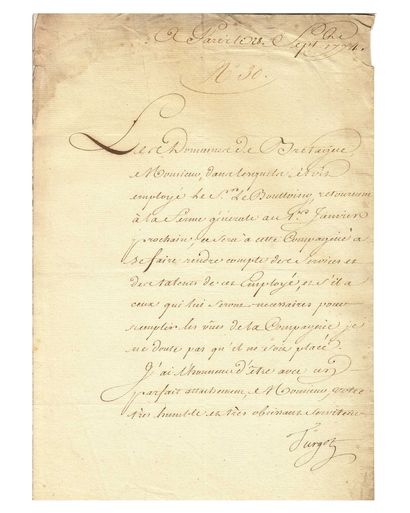 A Paris le 28. Sept.bre 1774.
N.º 30.
Les Domaines de Bretagne
Monsieur, dans lesquels étoit
employé le S.r Le Bouttoing, retournent
à la Ferme générale au 1.er Janvier
prochain, ce sera à cette Compagnie à
se faire rendre compte des Services et
des talens de ces Employés, et s'il a
ceux qui lui seront necessaires pour
remplir les vües de la Compagnie je
ne doute pas qu'il ne soit placé.
J'ai l'honneur d'être avec un
parfait attachement, Monsieur, votre
très humble et très obéissant serviteur
Turgot